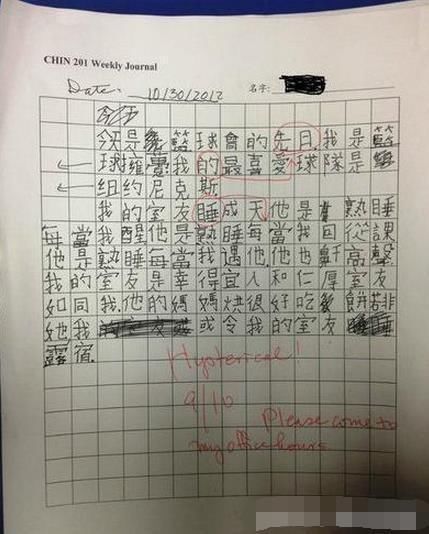 CHIN 201 Weekly Journal
Date: 10/30/2012 名字:
今天
今是籃球會的先日.我是籃
球擁躉我的最喜愛球隊是
纽约尼克斯
我的室友睡成天他是熟睡
每當我醒他是熟睡每當我回從課
他是熟睡每當我遇他他也鼾高聲
我的室友是幸得宜人和仁厚室友
如同我.他的媽媽烘很好吃餅若非
她我或令我的室友
露宿.
Hysterical!
9/10
Please come to
my office hours